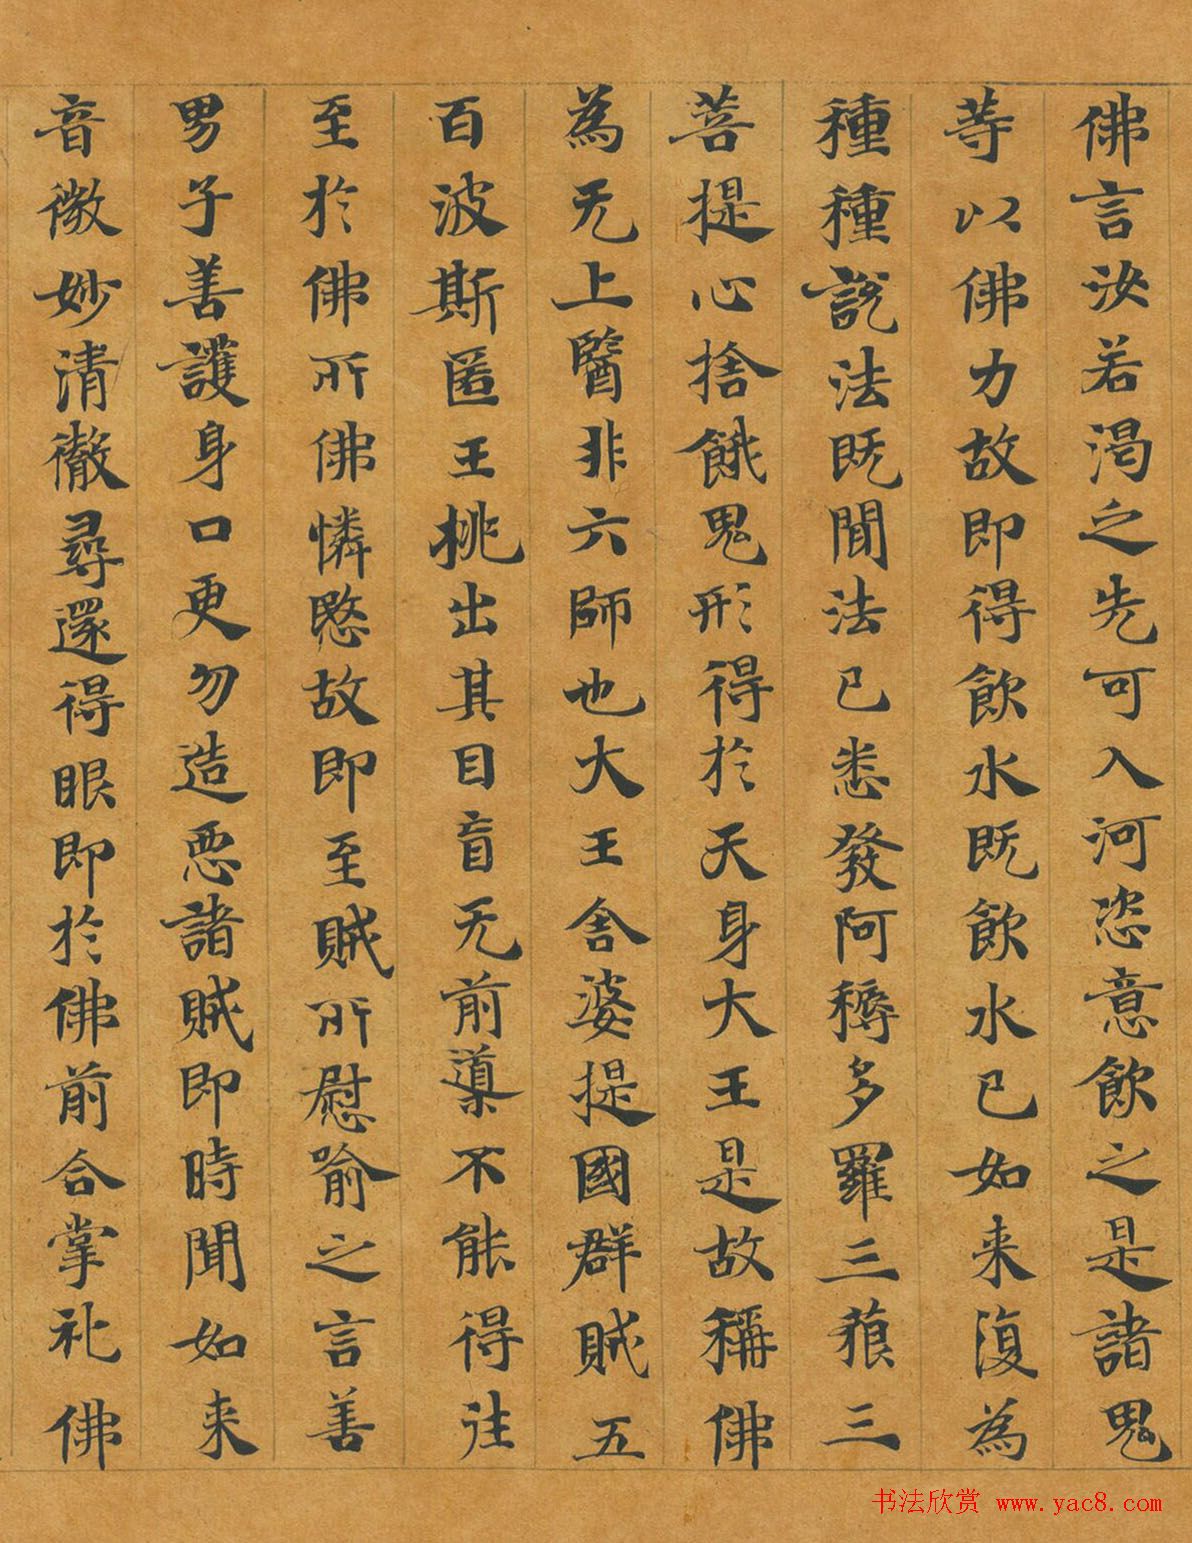 佛言汝若渴之先可入河恣意飲之是諸鬼
等以佛力故即得飲水既飲水已如来復為
種種說法既聞法已悉發阿耨多羅三藐三
菩提心捨餓鬼形得於天身大王是故稱佛
為无上醫非六師也大王舍婆提國群賊五
百波斯匿王挑出其目盲无前導不能得往
至於佛所佛憐愍故即至賊所慰喻之言善
男子善護身口更勿造惡諸賊即時聞如来
音微妙清徹尋還得眼即於佛前合掌礼佛
书法欣赏 www.yac8.com